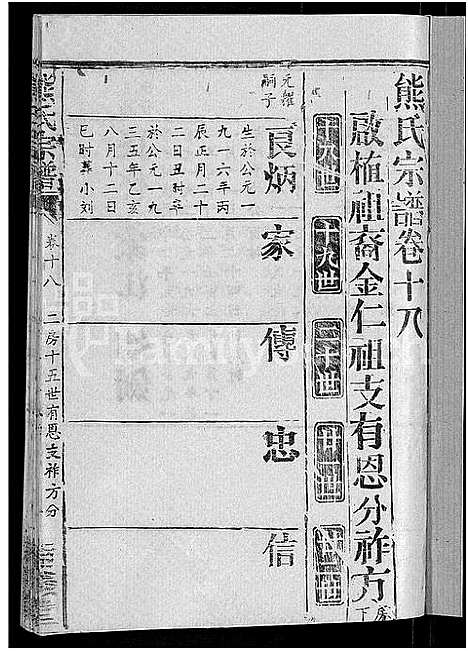 熊氏宗譜卷十八
啟植祖裔金仁祖支有恩分祚方房下
十八世
十九世
二十世
廿一世
廿二世
良炳
家
傳
忠
信
元耀
嗣子
生於公元一
九一六年丙
辰正月二十
二日丑時卒
於公元一九
三五年乙亥
八月十二日
巳時葬小劉
熊氏宗譜
卷十八
二房十五世有恩支祚方分